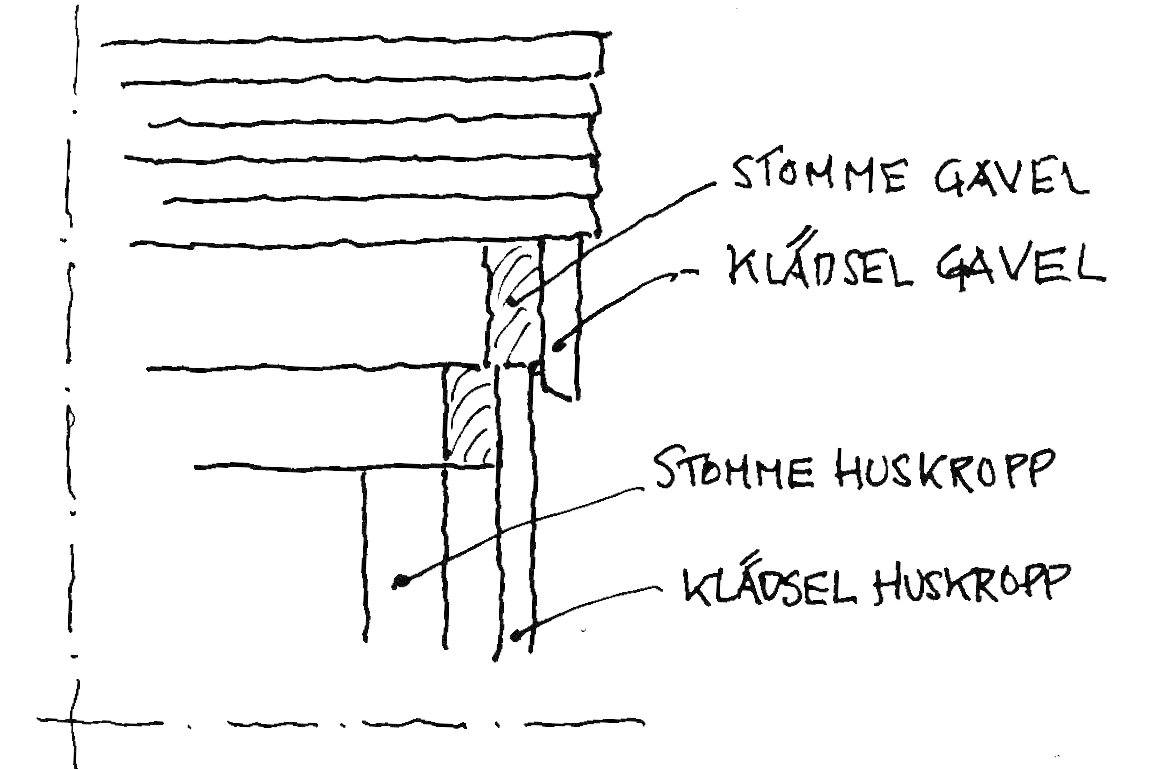 STOMME GAVEL
KLÄDSEL GAVEL
STOMME HUSKROPP
KLÄDSEL HUSKROPP